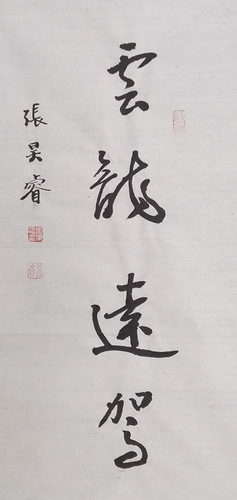 雲龍遠駕
張昊睿